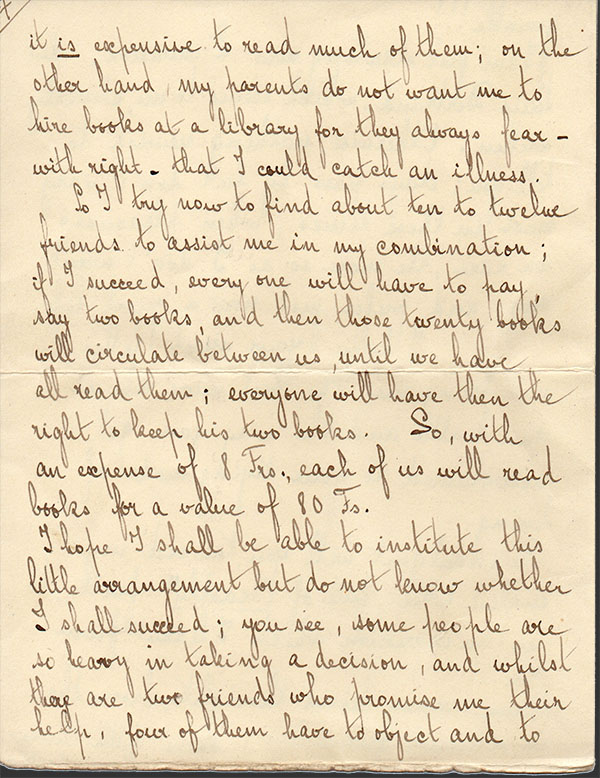 4
it is expensive to read much of them; on the
other hand, my parents do not want me to
hire books at a library for they always fear -
with right - that I could catch an illness.
So I try now to find about ten to twelve
friends to assist me in my combination;
if I succeed, every one will have to pay,
say two books, and then those twenty books
will circulate between us, until we have
all read them; everyone will have then the
right to keep his two books. So, with
an expense of 8 Frs., each of us will read
books for a value of 80 Fs.
I hope I shall be able to institute this
little arrangement but do not know whether
I shall succeed; you see, some people are
so heavy in taking a decision, and whilst
there are two friends who promise me their
help, four of them have to object and to